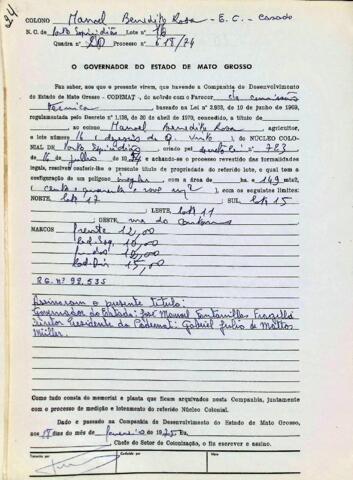 24
COLONO Manoel Benedito Rosa - E. C. - Casado
N. C. de Porto Espiridião Lote n.º 16
Quadra n.º 20 Processo n.º 618/74
O GOVERNADOR DO ESTADO DE MATO GROSSO
Faz saber, aos que o presente virem, que havendo a Companhia de Desenvolvimento
do Estado de Mato Grosso - CODEMAT -, de acôrdo com o Parecer da comissão
técnica baseado na Lei n.º 2.863, de 10 de junho de 1969,
regulamentada pelo Decreto n.º 1.138, de 20 de abril de 1970, concedido, a título de
ao colono Manoel Benedito Rosa agricultor,
o lote número 16 (dezesseis da Q. Vinte) do NÚCLEO COLO-
NIAL DE Porto Espiridião, criado pelo n.º 723
de 16 de julho de e achando-se o processo revestido das formalidades
legais, resolveu conferir-lhe o presente título de propriedade do referido lote, o qual tem a
configuração de um polígono irregular com a área de ha e 149 mts2,
(cento e quarenta e nove m2) com os seguintes limites:
NORTE, lote 17 SUL, lote 15
LESTE, lote 11
OESTE, rua do
MARCOS frente 12,00
10,00
fundos 10,00
15,00
RG. nº 98.535
Assinaram o presente título:
Governador do Estado: José Manoel Fontanillas Fragelli
Diretor Presidente da Codemat: Gabriel Julio de Mattos
Müller.
Como tudo consta do memorial e planta que ficam arquivados nesta Companhia, juntamente
com o processo de medição e loteamento do referido Núcleo Colonial.
Dado e passado na Companhia de Desenvolvimento do Estado de Mato Grosso,
aos dias do mês de fevereiro de 1975. Eu,
Chefe do Setor de Colonização, o fiz escrever e assino.
Transcrito por
Conferido por
Visto